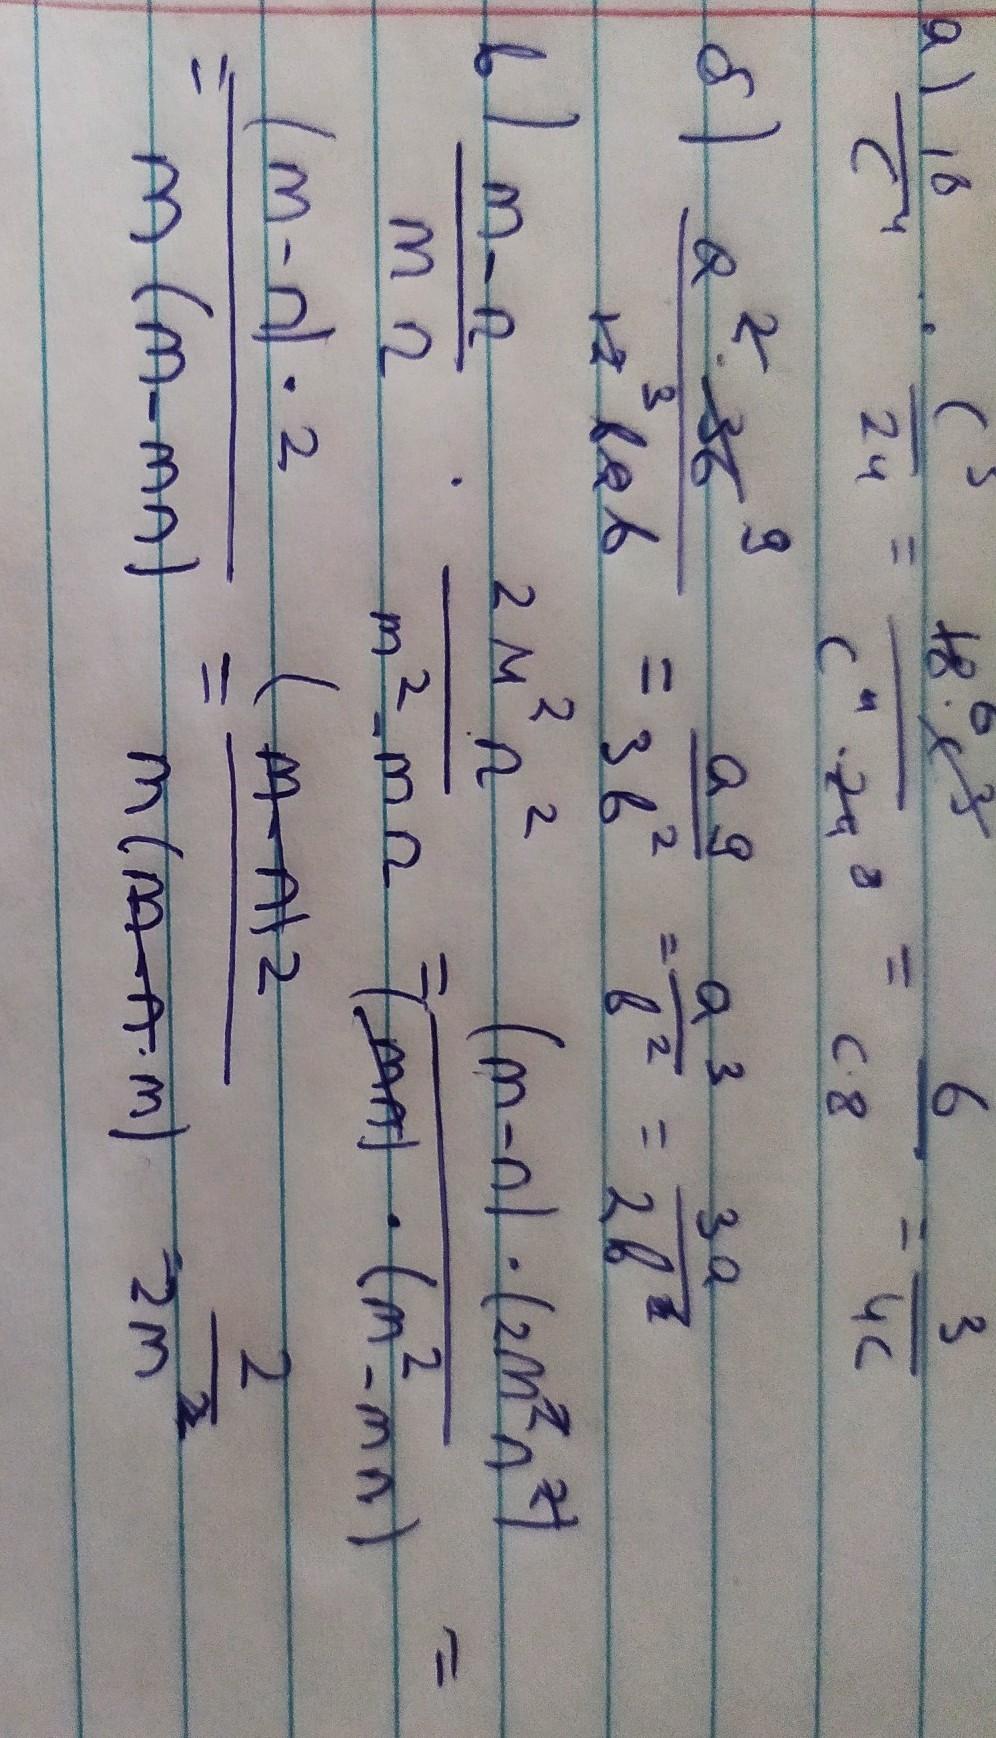 а) 18/c⁴ · c³/24 = 18⁶ · c³/c⁴ · 24⁸ = 6/c · 8 = 3/4c
б) a² · 36⁹/12³ b a b = a9/3b² = a3/b² = 3a/2b²
в) m - n/m n · 2м²n²/m² - mn = (m - n) · (2m²n²)/(mn) · (m² - mn) =
= (m - n) · 2/m (m - mn) = (m - n) 2/m (m - n · m) 2/2m